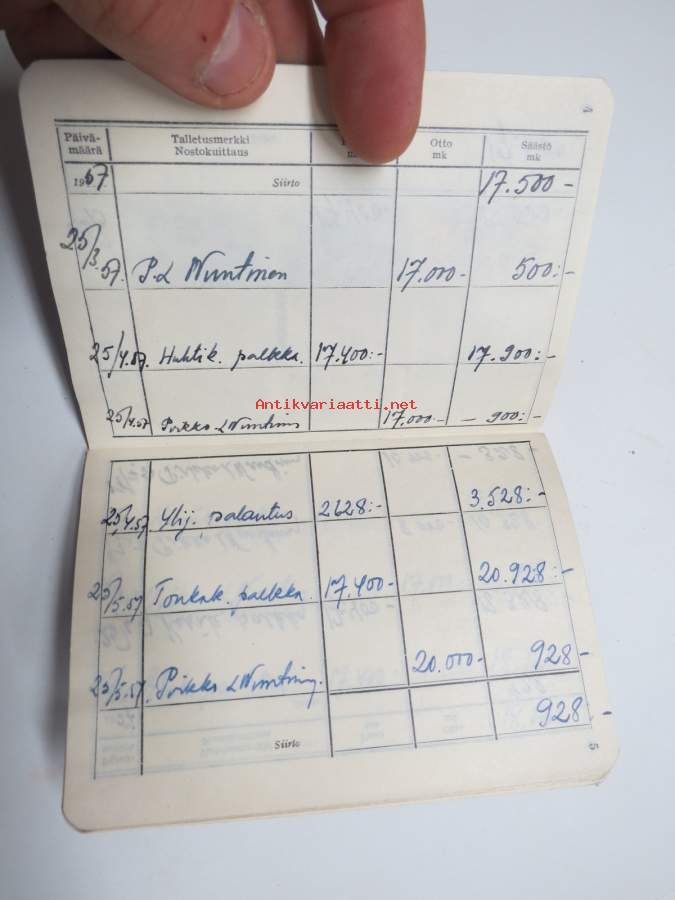 4
Päivä-
määrä Talletusmerkki
Nostokuittaus mk Otto
mk Säästö
mk
1957 Siirto 17.500-
25/3.57. P-L Nuutinen 17.000- 500:-
25/4.57. Huhtik. palkka. 17.400:- 17.900:-
25/4.57 Pirkko-L Nuutinen 17.000:- - 900:-
Antikvariaatti.net
25/4.57. Ylij. palautus 2628:- 3.528:-
25/5.57 Toukok. palkka. 17.400- 20.928:-
25/5.57. Pirkko L Nuutinen. 20.000- 928-
928:-
Siirto
5